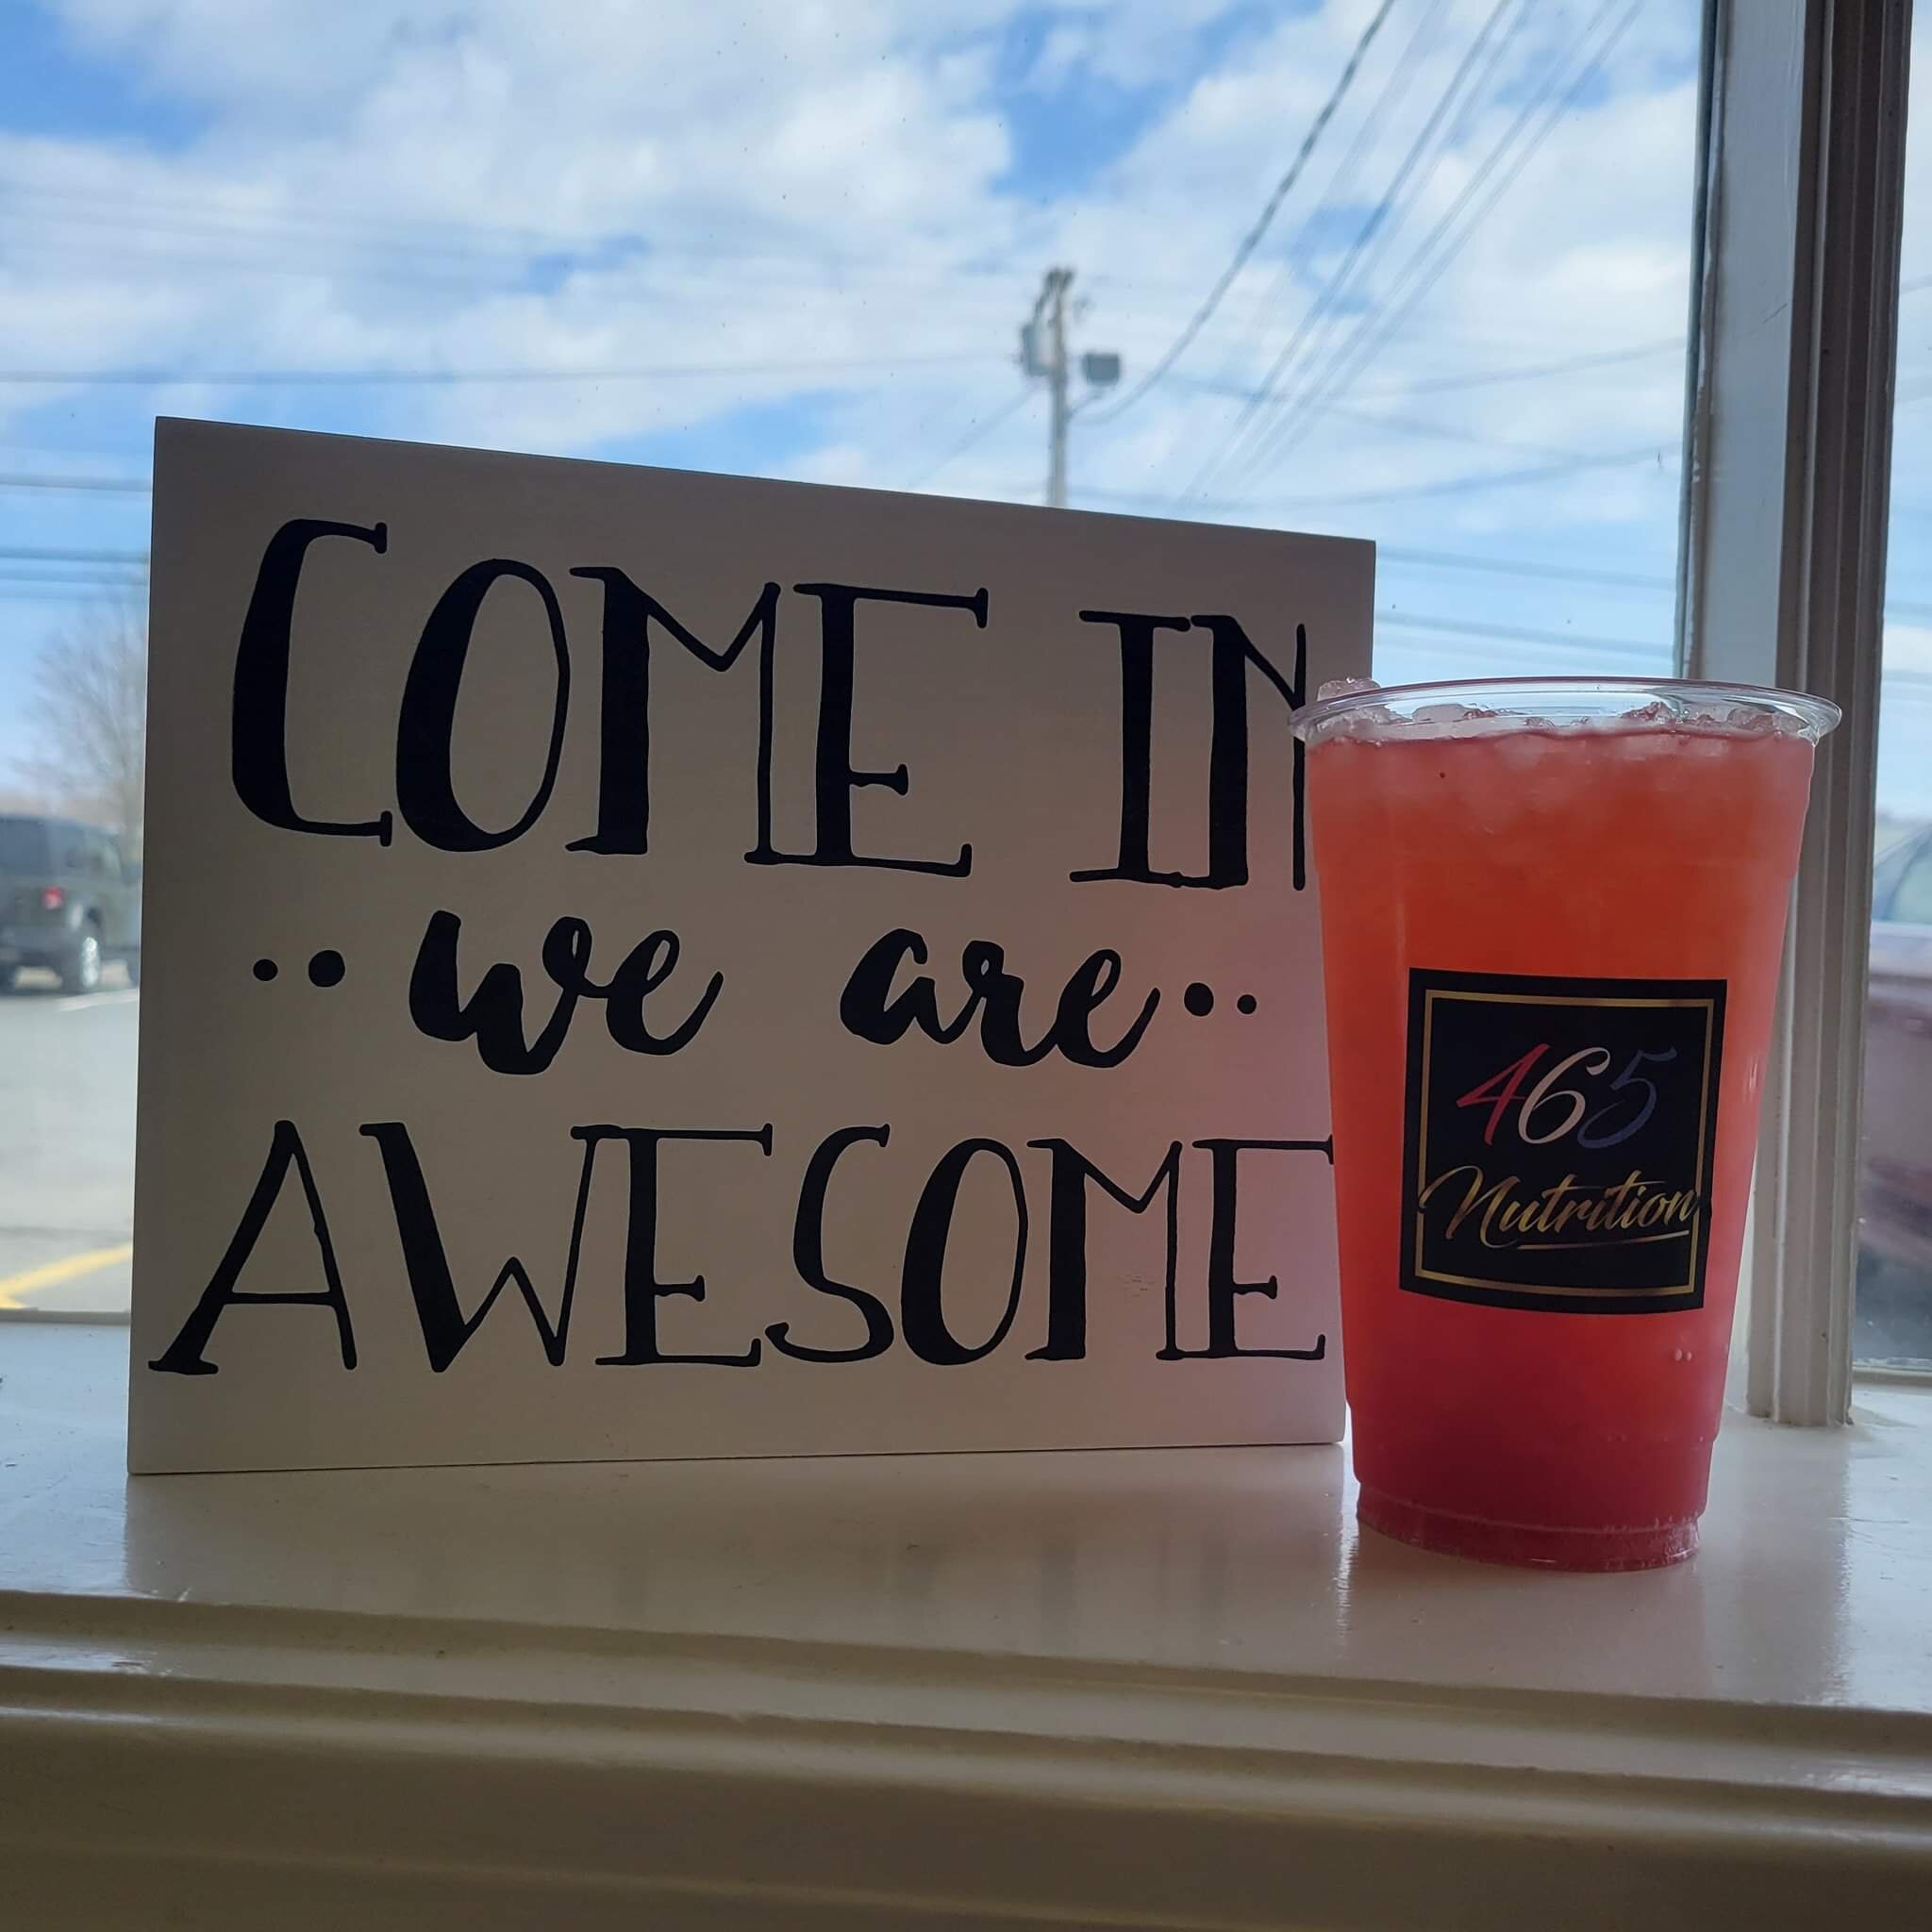 COME IN
we are
AWESOME
465
Nutrition